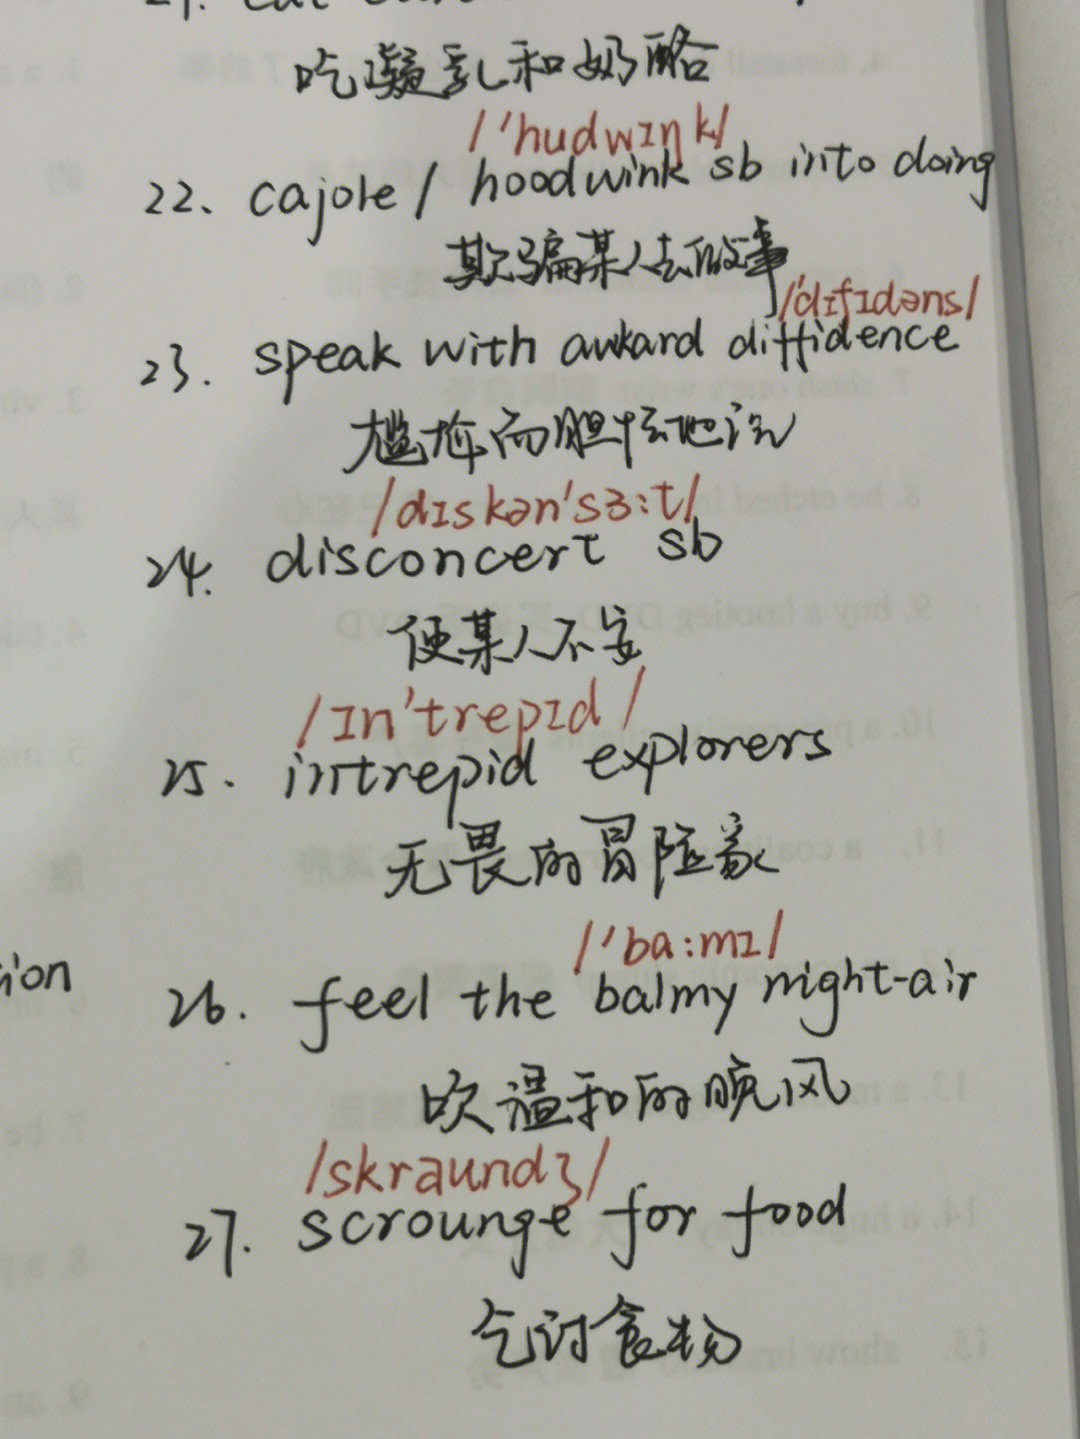 吃凝乳和奶酪
/'hudwɪŋk/
22. cajole / hoodwink sb into doing
欺骗某人去做某事
/'dɪfɪdəns/
23. speak with awkard diffidence
尴尬而胆怯地说
/dɪskən'sɜ:t/
24. disconcert sb
使某人不安
/ɪn'trepɪd/
25. intrepid explorers
无畏的冒险家
/'ba:mɪ/
26. feel the balmy night-air
吹温和的晚风
/skraundʒ/
27. scrounge for food
乞讨食物